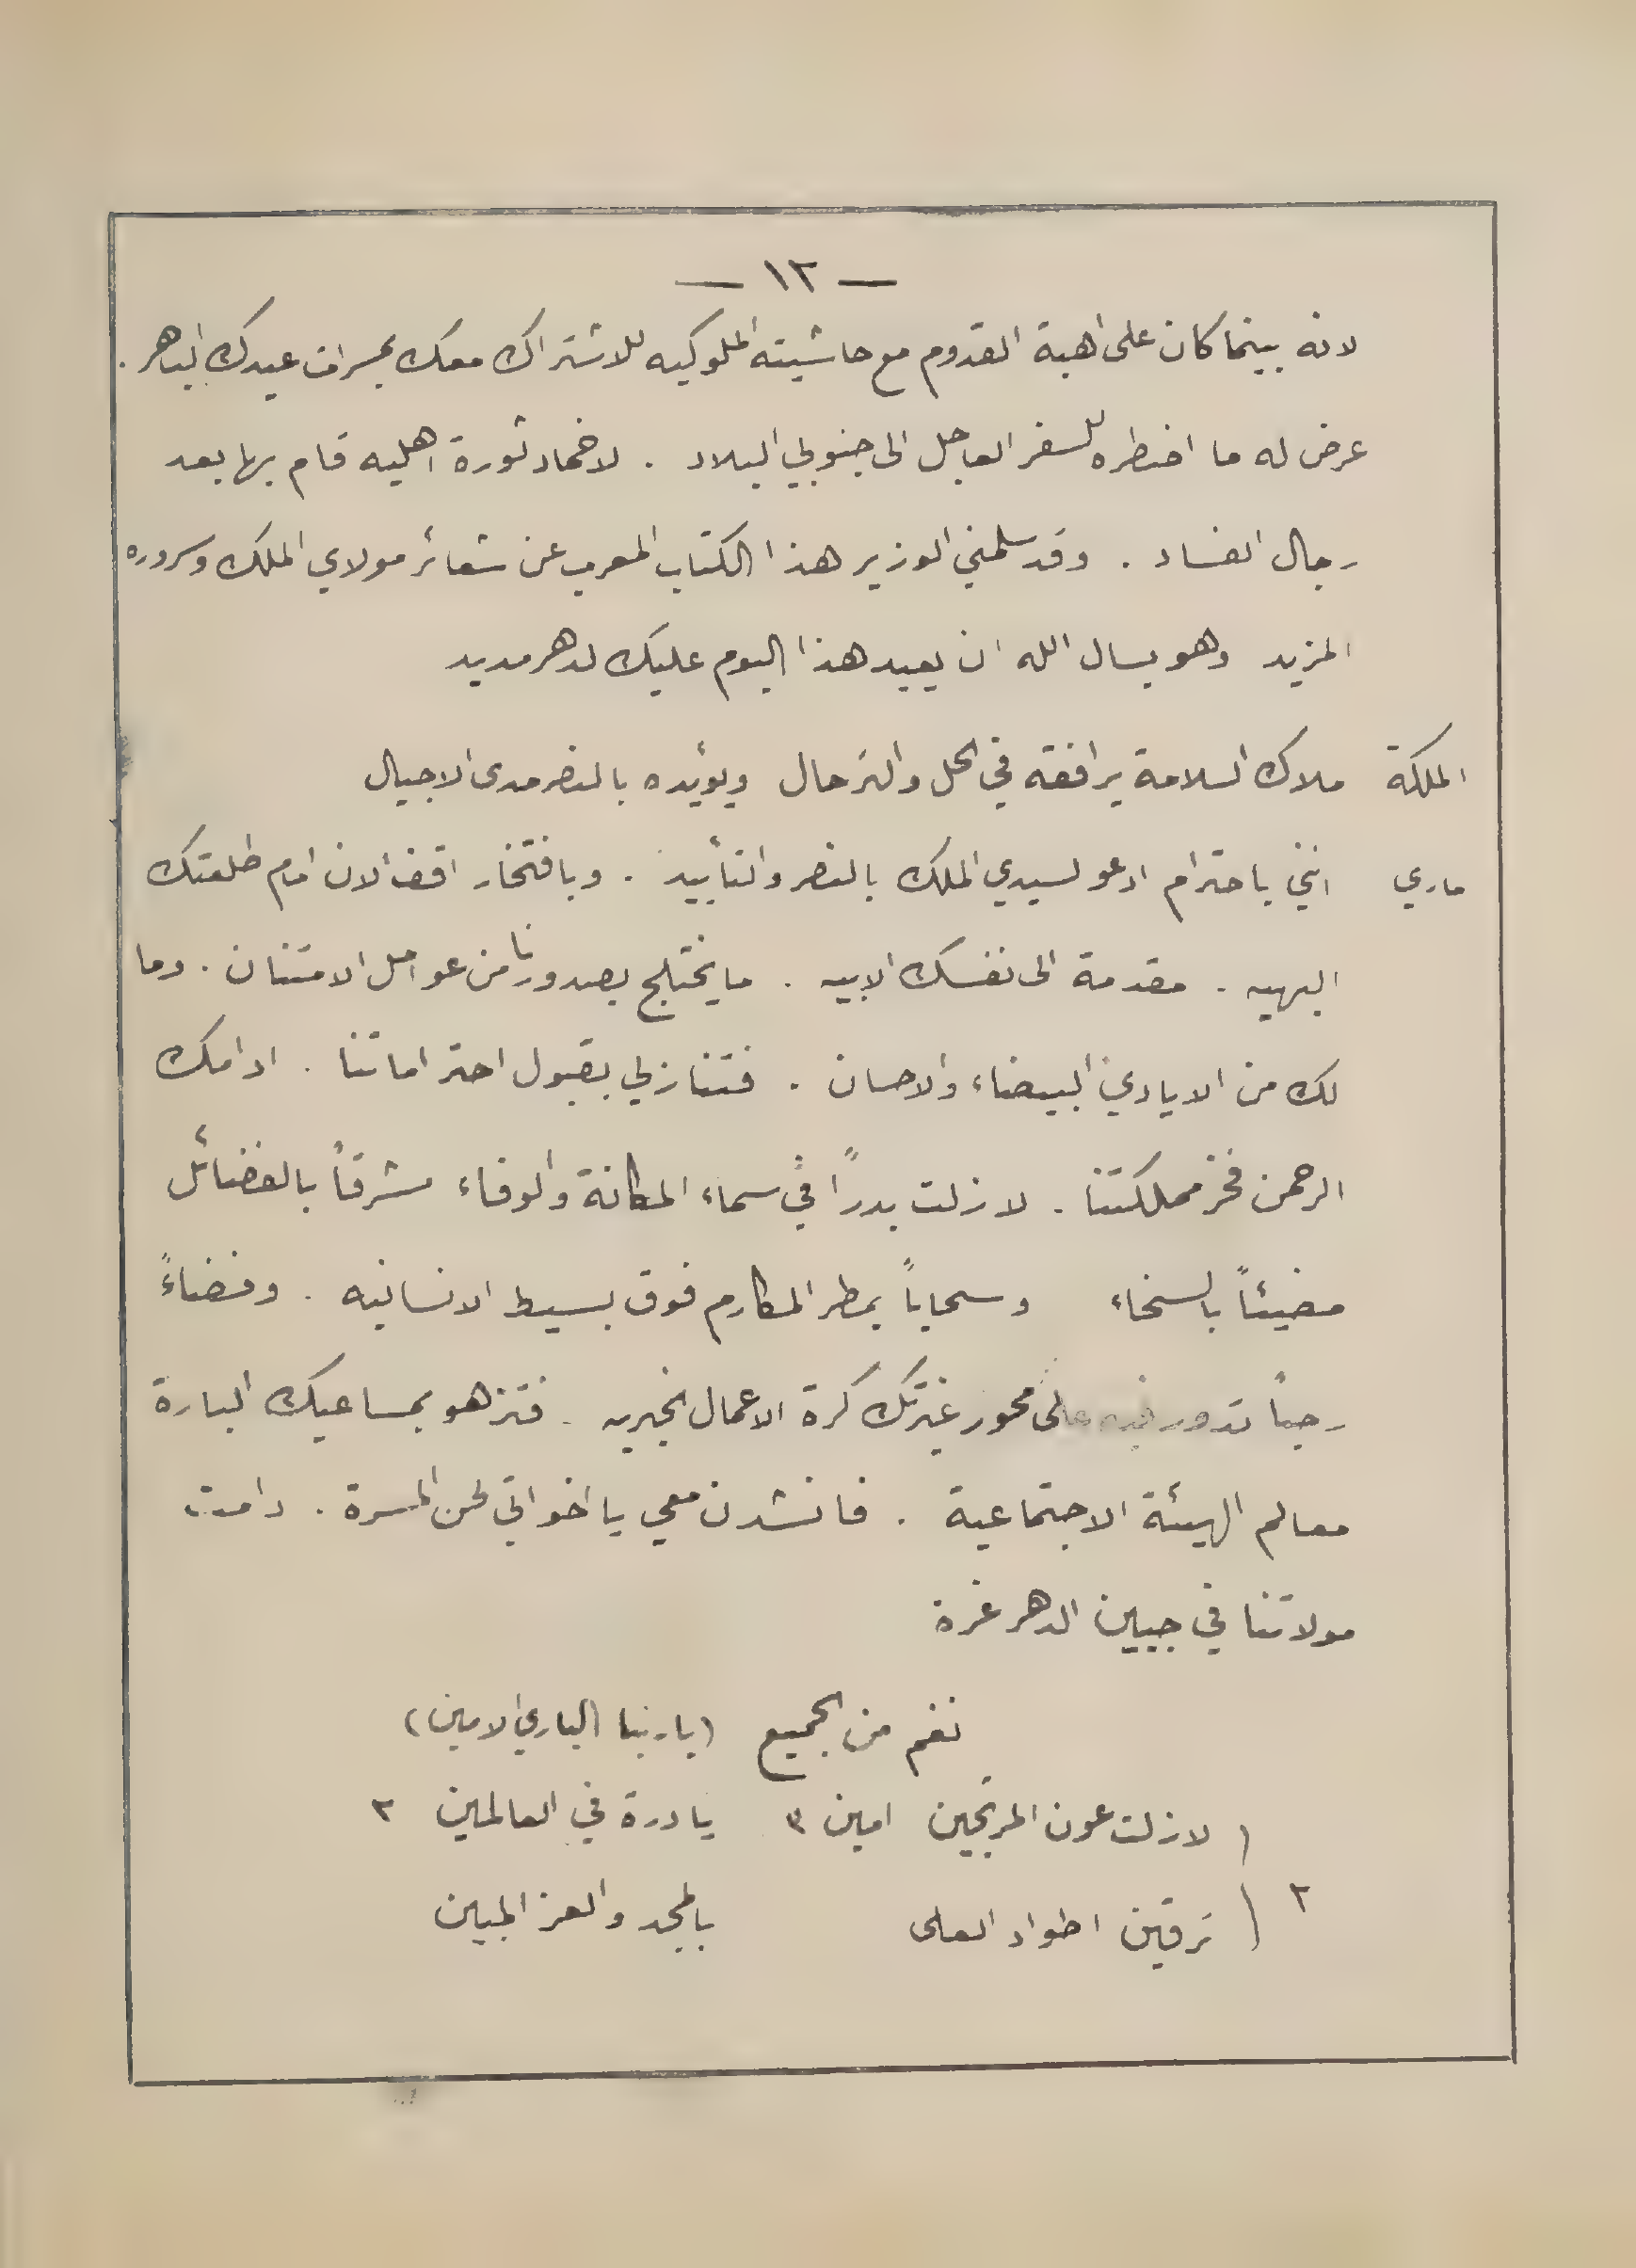 — ١٢ —
لانه بينما كان على اهبة القدوم مع حاشيته الملوكيه للاشتراك معك بمسرات عيدك الباهر .
عرض له ما اضطره للسفر العاجل الى جنوبي البلاد . لاخماد ثورة اهليه قام بها بعد
رجال الفساد . وقد سلمني الوزير هذا الكتاب المعرب عن شعائر مولاي الملك وسروره
المزيد وهو يسال الله ان يعيد هذا اليوم عليك لدهر مديد
الملكة ملاك السلامة يرافقه في الحل والترحال ويؤيده بالنصر مدى الاجيال
ماري انني باحترام ادعو لسيدي الملك بالنصر والتأييد . وبافتخار اقف الان امام طلعتك
البهيه . مقدمة الى نفسك الابيه . ما يختلج بصدورنا من عوامل الامتنان . وما
لك من الايادي البيضاء والاحسان . فتنازلي بقبول احتراماتنا . ادامك
الرحمن فخر مملكتنا . لازلت بدراً في سماء المكانة والوفاء مشرقاً بالفضائل
مضيئاً بالسخاء وسحاباً يمطر المكارم فوق بسيط الانسانيه . وفضاءً
رحباً تدور فيه على محور غيرتك كرة الاعمال الخيريه . فتزهو بمساعيك البارة
معالم الهيئة الاجتماعية . فانشدن معي يا اخواتي لحن المسرة . دامت
مولاتنا في جبين الدهر غرة
نغم من الجميع (يا ربنا الباري الامين)
( لازلت عون المرتجين امين ٣ يا درة في العالمين ٢
٢ ( ترقين اطواد العلى بالمجد والعز المبين